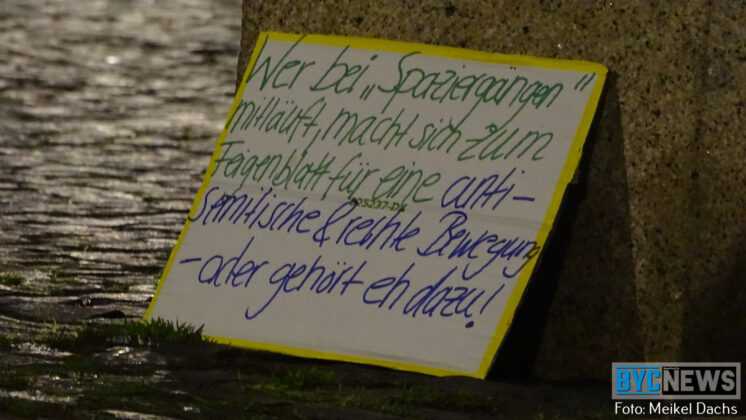 Wer bei „Spaziergängen"
mitläuft, macht sich zum
Feigenblatt für eine anti-
semitische & rechte Bewegung
- oder gehört eh dazu!
BYC NEWS
Foto: Meikel Dachs